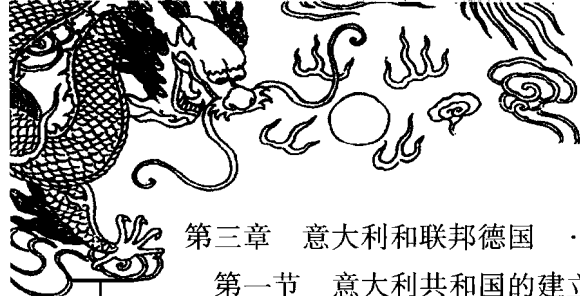 第三章 意大利和联邦德国 ·
第一节 意大利共和国的建立